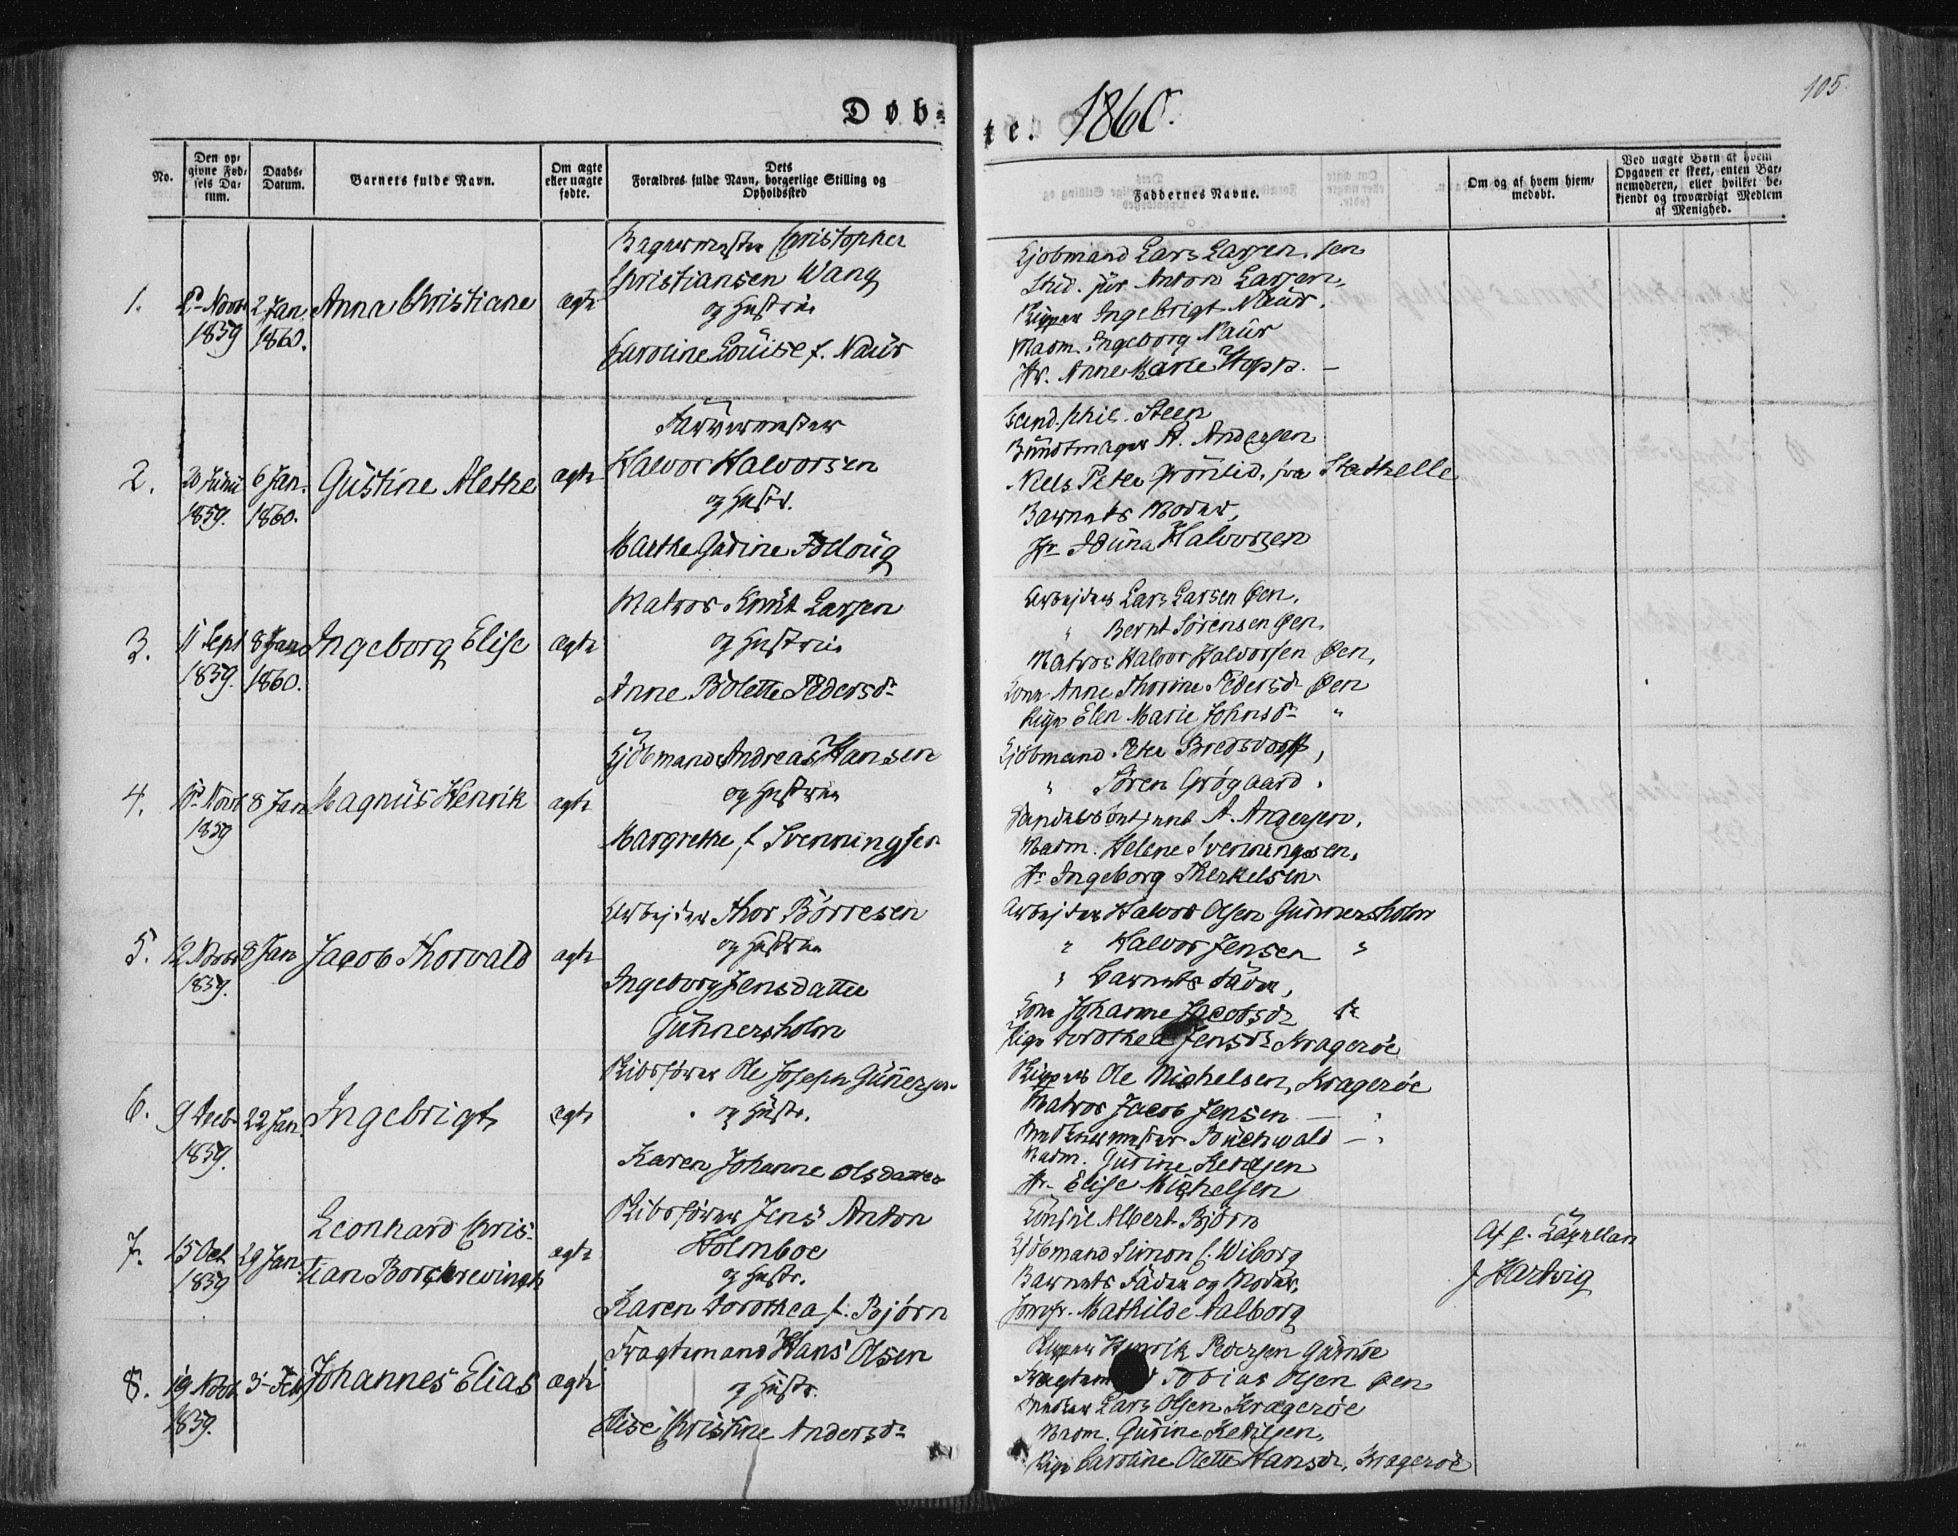 105
Døb-
te. 1860.
No.
Den op-
givne Fød-
sels Da-
tum.
Daabs-
Datum.
Barnets fulde Navn.
Om ægte
eller uægte
fødte.
Dets
Forældres fulde Navn, borgerlige Stilling og
Opholdssted
Faddernes Navne.
Om og af hvem hjem-
medøbt.
Ved uægte Børn af hvem
Opgaven er skeet, enten Bar-
nemoderen, eller hvilket be-
kjendt og troværdigt Medlem
af Menighed.
1.
Novbr
1859
2 Jan.
1860.
Anna Christiane
ægte
Bagermester Christopher
Christiansen Wang
og Hustrue
Caroline Louise f. Naur
Kjøbmand Lars Larsen, sen
Stud. jur. Anton Larsen,
Skipper Ingebrigt Naur,
Madm. Ingeborg Naur
Jfr. Anne Marie Hopp. —
2.
20 Juni
1859.
6 Jan.
1860.
Gustine Alethe
ægte
Farvermester
Halvor Halvorsen
og Hustr.
Marthe Gurine Folloug
Cand. phil. Steen
Bundtmager A. Andersen
Niels Peter Grønlid, fra Stathelle
Barnets Moder,
Jfr Iduna Halvorsen
3.
11 Sept
1859.
8 Jan
1860.
Ingeborg Elise
ægte
Matros Knut Larsen
og Hustrue
Anne Bolette Pedersdr
Arbejder Lars Larsen Øen,
" Bernt Sørensen Øen,
Matros Halvor Halvorsen Øen,
Kone Anne Thorine Pedersdr Øen
Pige Elen Marie Johnsdr "
4.
Novbr
1859
8 Jan
Magnus Henrik
ægte
Kjøbmand Andreas Hansen
og Hustrue
Margrethe f. Svenningsen
Kjøbmand Peter Bredsdorff,
" Søren Grøgaard.
Handelsbetjent A. Andersen,
Madm. Helene Svenningsen,
Jfr Ingeborg Therkelsen
5.
12 Novbr
1859.
8 Jan
Jacob Thorvald
ægte
Arbejder Thor Børresen
og Hustrue
Ingeborg Jensdatter
Gunnersholm
Arbejder Halvor Olsen Gunnersholm
" Halvor Jensen "
" Barnets Fader,
Kone Johanne Jacobsdr
Pige Dorothea Jensdr Kragerøe
6.
9 Decbr
1859.
22 Jan.
Ingebrigt
ægte
Skibsfører Ole Joseph Gunersen
og Hustr.
Karen Johanne Olsdatter
Skipper Ole Michelsen, Kragerøe
Matros Jacob Jensen —
Buchwald —
Madm. Gurine Ketilsen
Jfr Elise Michelsen
7.
15 Oct
1859
29 Jan.
Leonhard Chris-
tian Borchgrevinck
ægte
Skibsfører Jens Anton
Holmboe
og Hustr.
Karen Dorothea f. Bjørn
Consul Albert Bjørn
Kjøbmand Simon C. Wiborg
Barnets Fader og Moder,
Jomfr. Mathilde Aalborg
Af p. Capellan
Hartvig
8.
19 Novbr
1859.
3 Feb
Johannes Elias
ægte
Fragtemand Hans Olsen
og Hustr.
Elise Christine Andersdr
Skipper Henrik Pedersen Gumøe
Tobias Olsen Øen
Lars Olsen Kragerøe
Madm. Gurine Ketilsen,
Pige Caroline Olette Hansdr, Kragerøe